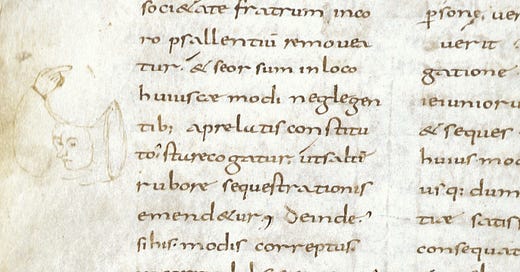 societate fratrum inco
ro psallentiū removea
tur. & seorsum in loco
huiuscæmodi neglegen
tib; a prelatis constitu
tus
rubore sequestrationis
emend&ur, Deinde
modis correptus
personę, ver
verit
gatione
ieiuniorū
& seques
huius mod
usq; dum
tiæ satis
consequat